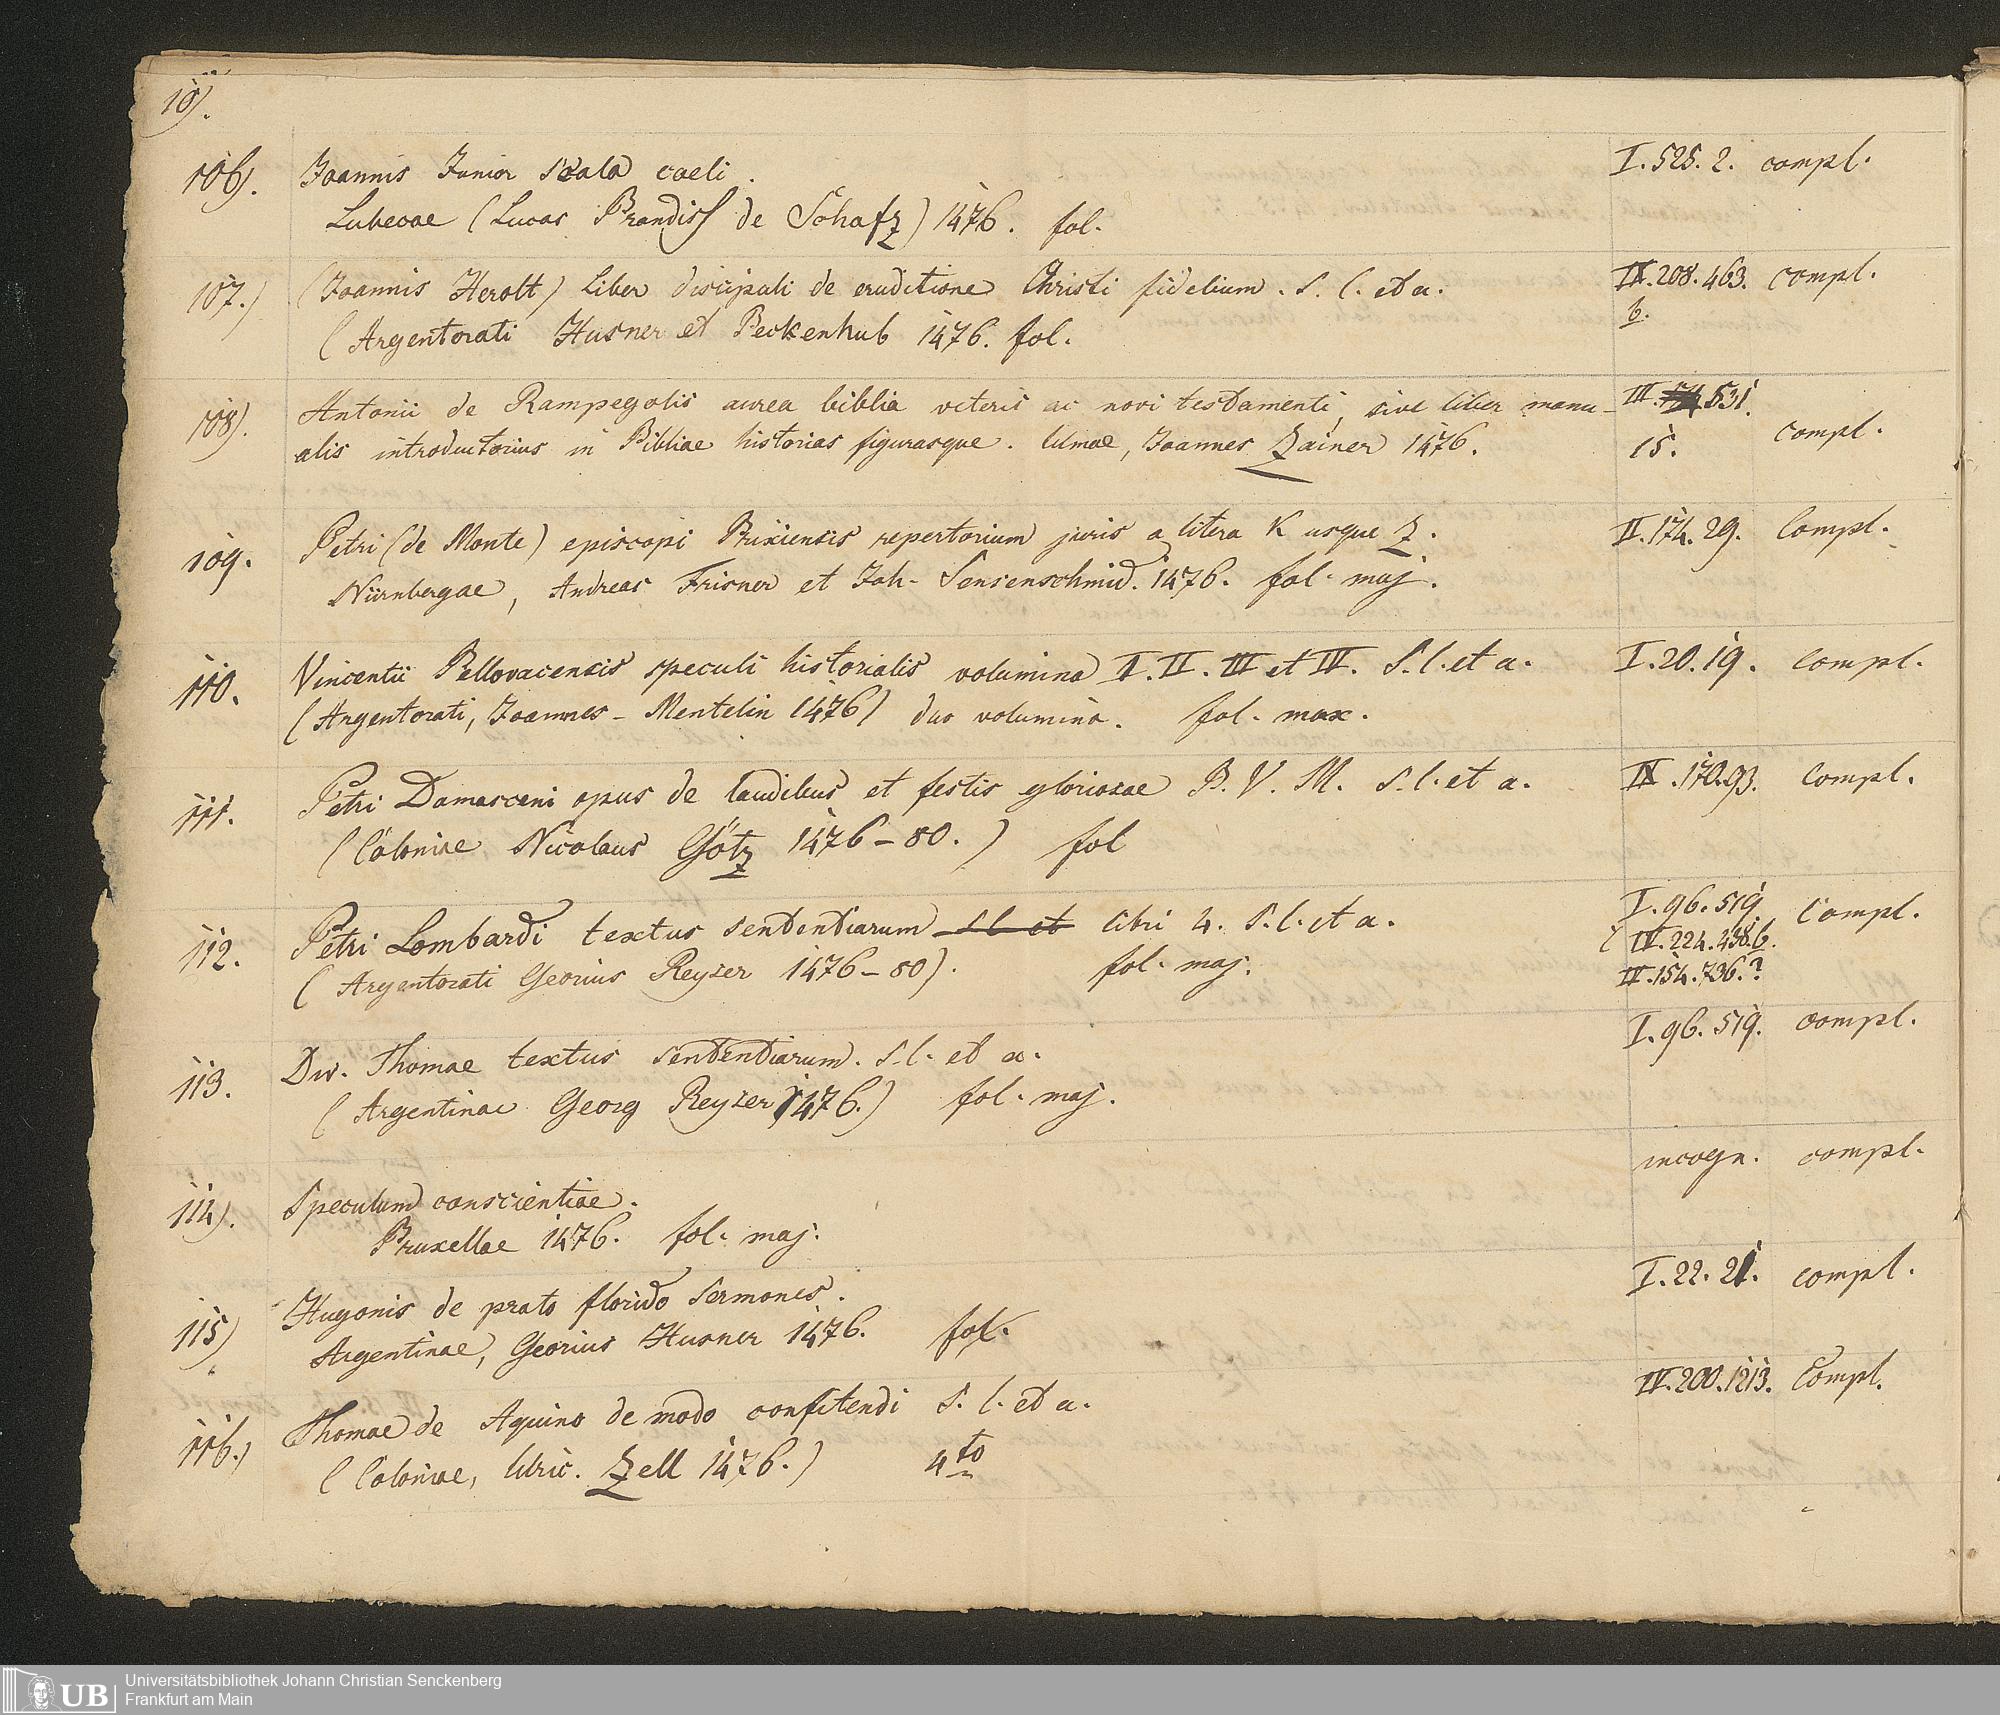 10).
106). Joannis Junior scala coeli. I. 525. 2. compl.
Lubecae (Lucas Brandiss de Schafz) 1476. fol.
107.) (Joannis Herolt) Liber discipuli de eruditione Christi fidelium. S. l. et a. IV. 208. 463. compl.
(Argentorati Husner et Beckenhub 1476. fol. b.
108). Antonii de Rampegolis aurea biblia veteris ac novi testamenti, sive liber manu- III. 531.
alis introductorius in Bibliae historias figurasque. Ulmae, Joannes Zainer 1476. 15. compl.
109. Petri (de Monte) episcopi Brixiensis repertorium juris a litera K usque Z. II. 174. 29. Compl.
Nürnbergae, Andreas Frisner et Joh. Sensenschmid. 1476. fol. maj.
110. Vincentii Bellovacensis speculi historialis volumina I. II. III et IV. S. l. et a. I. 20. 19. compl.
(Argentorati, Joannes Mentelin 1476) duo volumina. fol. max.
111. Petri Damasceni opus de laudibus et festis gloriosae B. V. M. S. l. et a. IV. 170. 93. Compl.
(Coloniae Nicolaus Götz 1476-80.) fol
112. Petri Lombardi textus sententiarum s l et libri 4. S. l. et a. I. 96. 519. Compl.
(IV. 224. 438. b.
(Argentorati Georius Reyser 1476-80). fol. maj. IV. 154. 736.?
113. Div. Thomae textus sententiarum. S. l. et a. I. 96. 519. compl.
(Argentinae Georg Reyser 1476.) fol. maj.
114). Speculum conscientiae. incogn. compl.
Bruxellae 1476. fol. maj.
115) Hugonis de prato florido Sermones. I. 22. 21. compl.
Argentinae, Georius Husner 1476. fol.
116.) Thomae de Aquino de modo confitendi S. l. et a. IV. 200. 1213. Compl.
(Coloniae, Ulric. Zell 1476.) 4to
UB Universitätsbibliothek Johann Christian Senckenberg
Frankfurt am Main